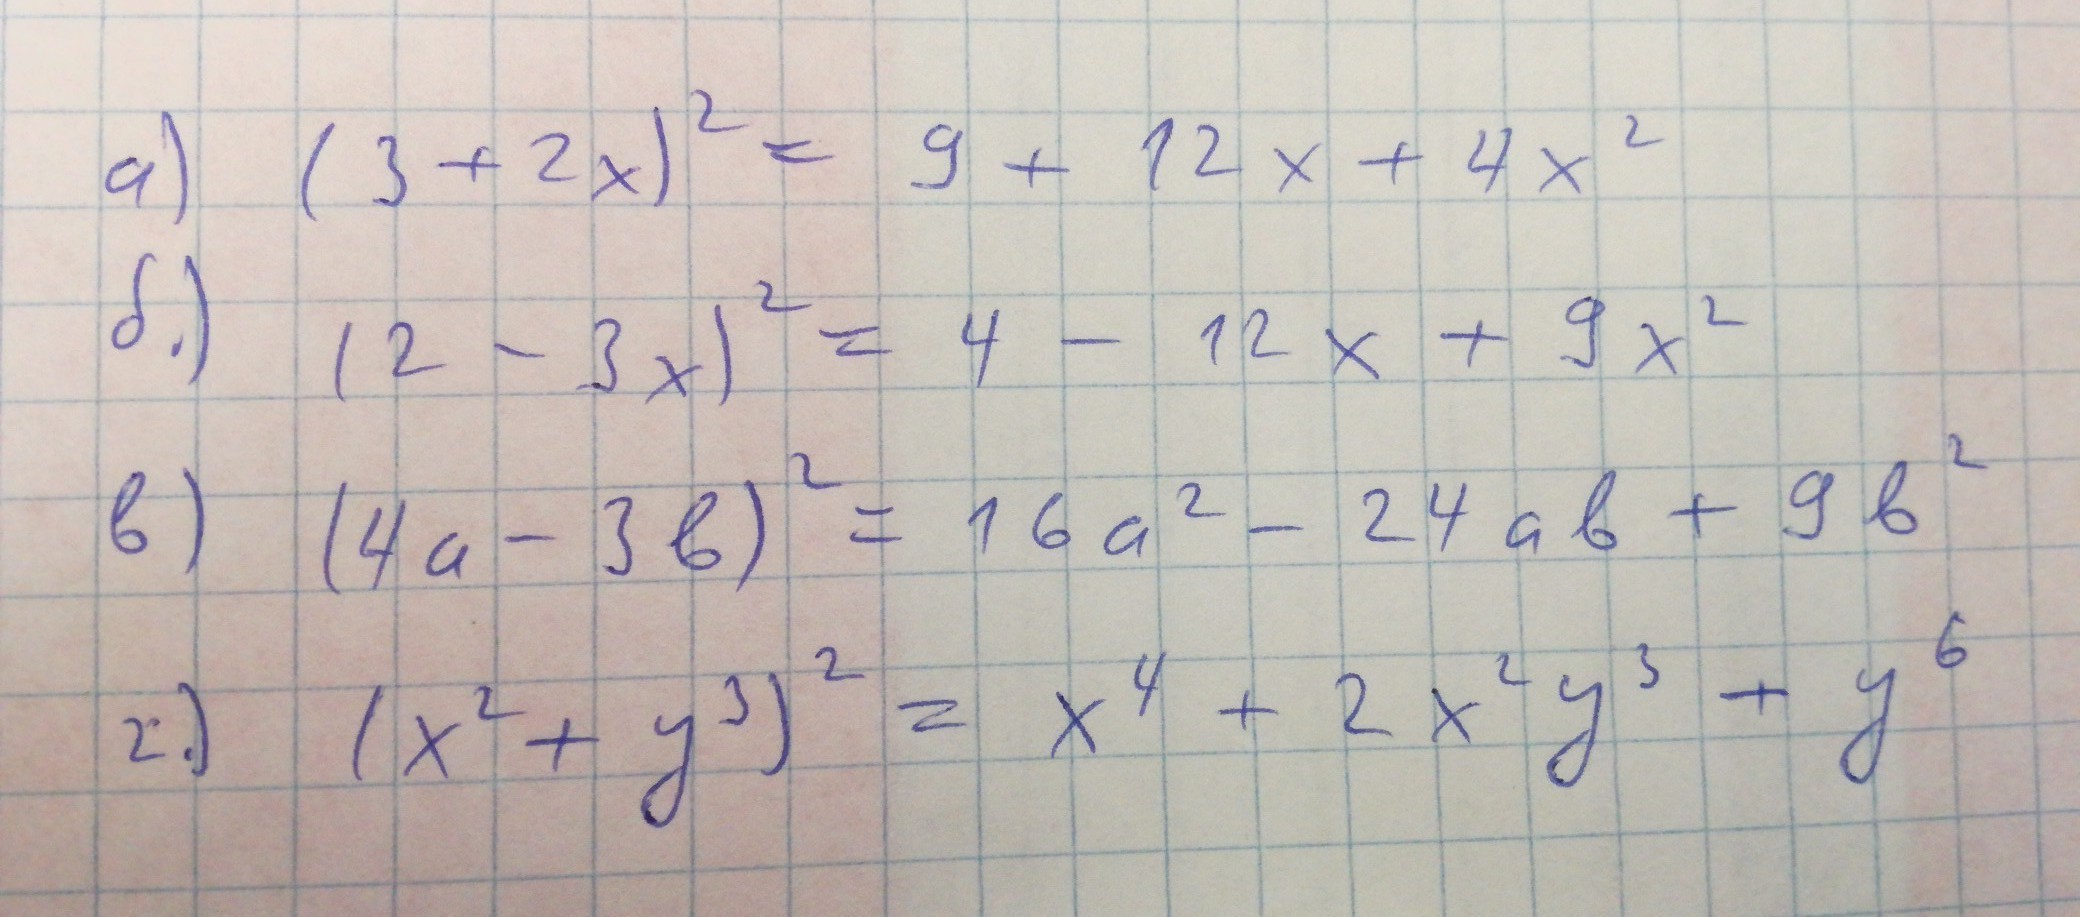 а) (3 + 2x)² = 9 + 12x + 4x²
б.) (2 - 3x)² = 4 - 12x + 9x²
в) (4a - 3b)² = 16a² - 24ab + 9b²
г.) (x² + y³)² = x⁴ + 2x²y³ + y⁶